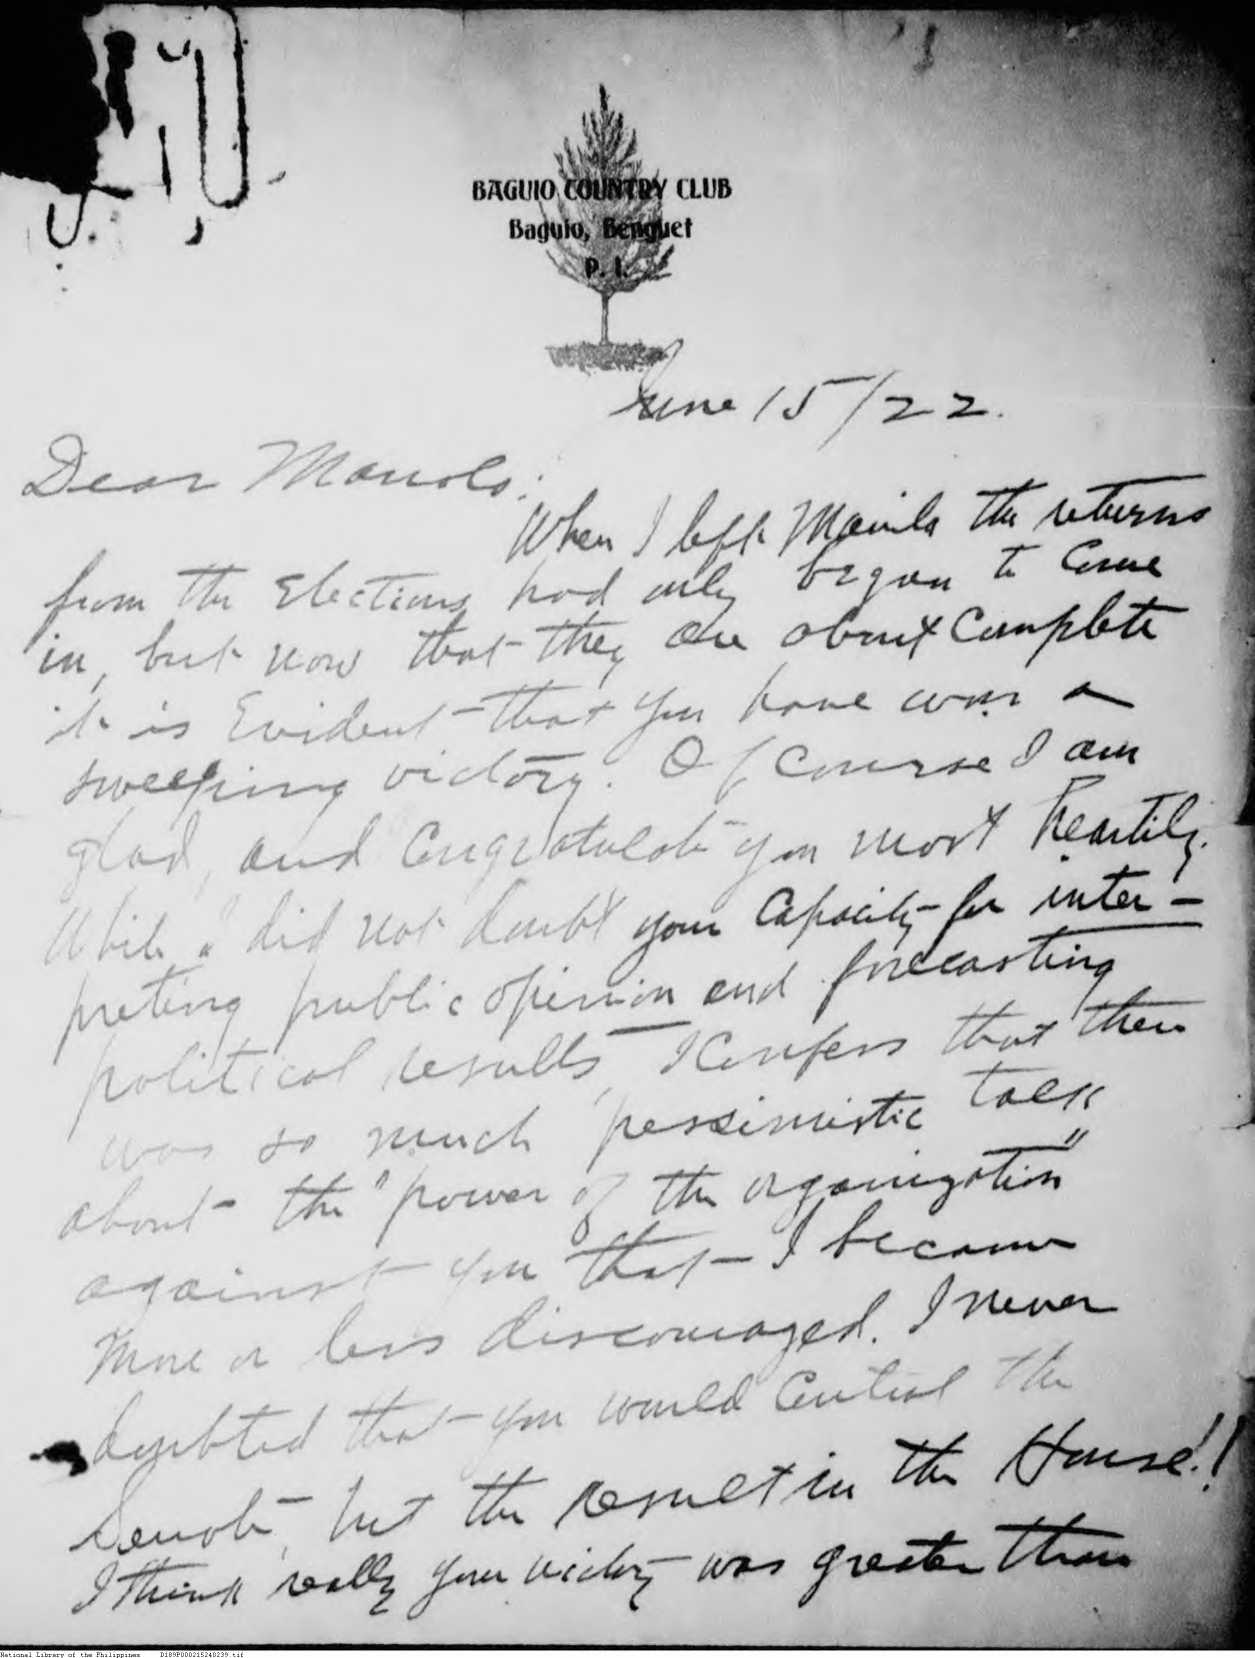 BAGUIO COUNTRY CLUB
Baguio, Benguet
P. I.
June 15/22.
Dear Manolo:
When I left Manila the returns
from the Elections had only began to come
in, but now that they are about complete
it is Evident that you have won a
sweeping victory. Of course I am
glad, and congratulate you most heartily.
While I did not doubt your capacity for inter-
preting public opinion and forecasting
political results, I confess that there
was so much pessimistic talk
about the "power of the organization"
against you that I became
more or less discouraged. I never
doubted that you would control the
Senate, but the result in the House!!
I think really your victory was greater than
National Library of the Philippines D189P000215240239.tif